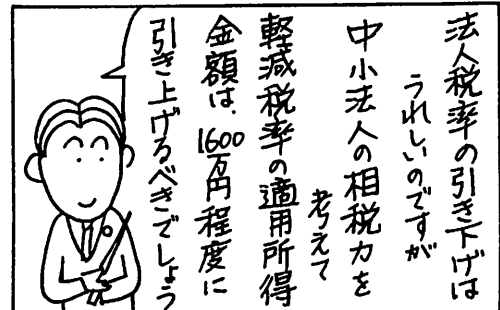 法人税率の引き下げは
うれしいのですが
中小法人の相税力を
考えて
軽減税率の適用所得
金額は、1600万円程度に
引き上げるべきでしょう